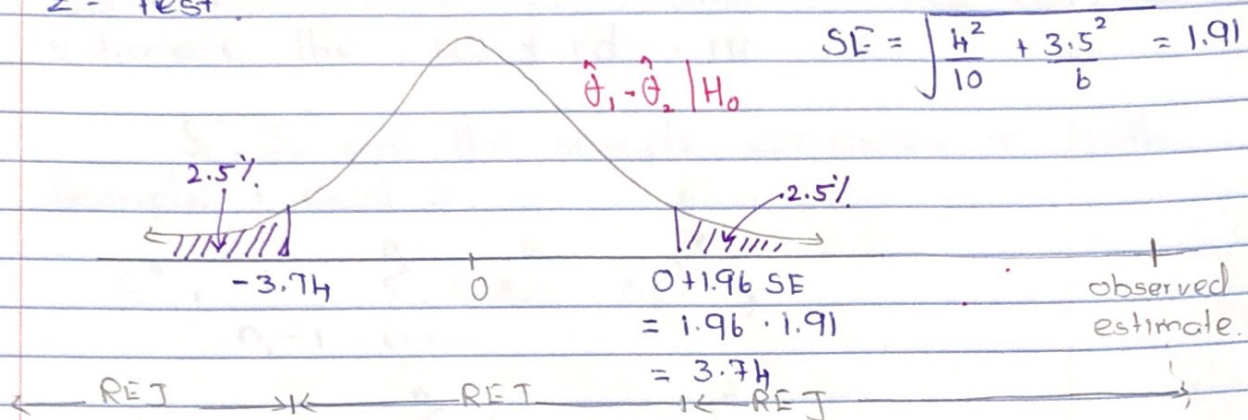 z - test.
SE = √(4²/10 + 3.5²/6) = 1.91
θ̂₁ - θ̂₂ | H₀
2.5%
2.5%
-3.74
0
0+1.96 SE
= 1.96 · 1.91
= 3.74
observed
estimate.
REJ
RET
REJ